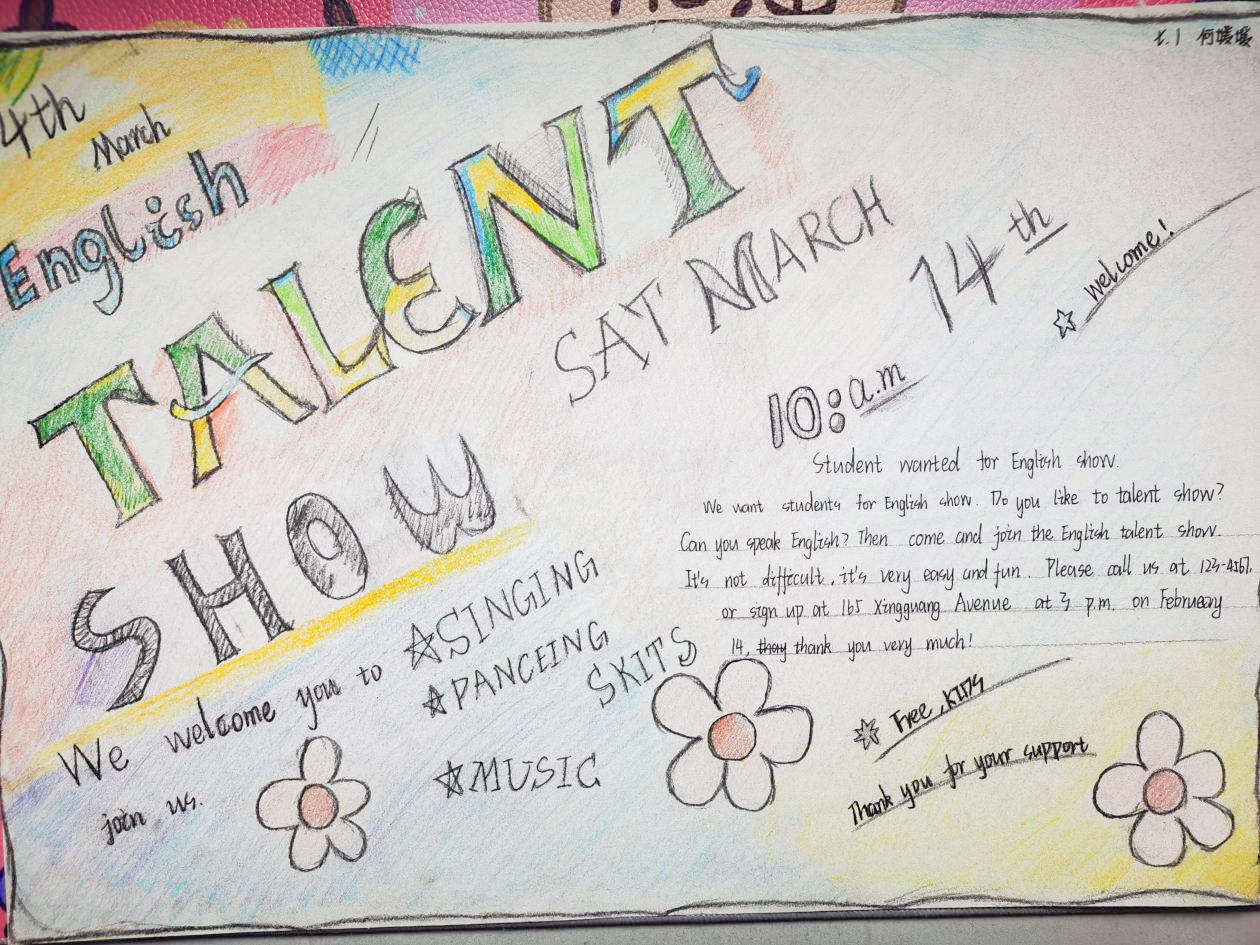 4th
March
English
TALENT
SHOW
SAT MARCH 14th
☆ welcome!
10:a.m
Student wanted for English show.
We want students for English show. Do you like to talent show?
Can you speak English? Then come and join the English talent show.
It's not difficult, it's very easy and fun. Please call us at 123-4567.
or sign up at 165 Xingguang Avenue at 3 p.m. on February
14, thay thank you very much!
We welcome you to
join us.
☆SINGING
☆DANCEING
SKITS
☆MUSIC
☆ Free, KIDS
Thank you for your support
何媛媛